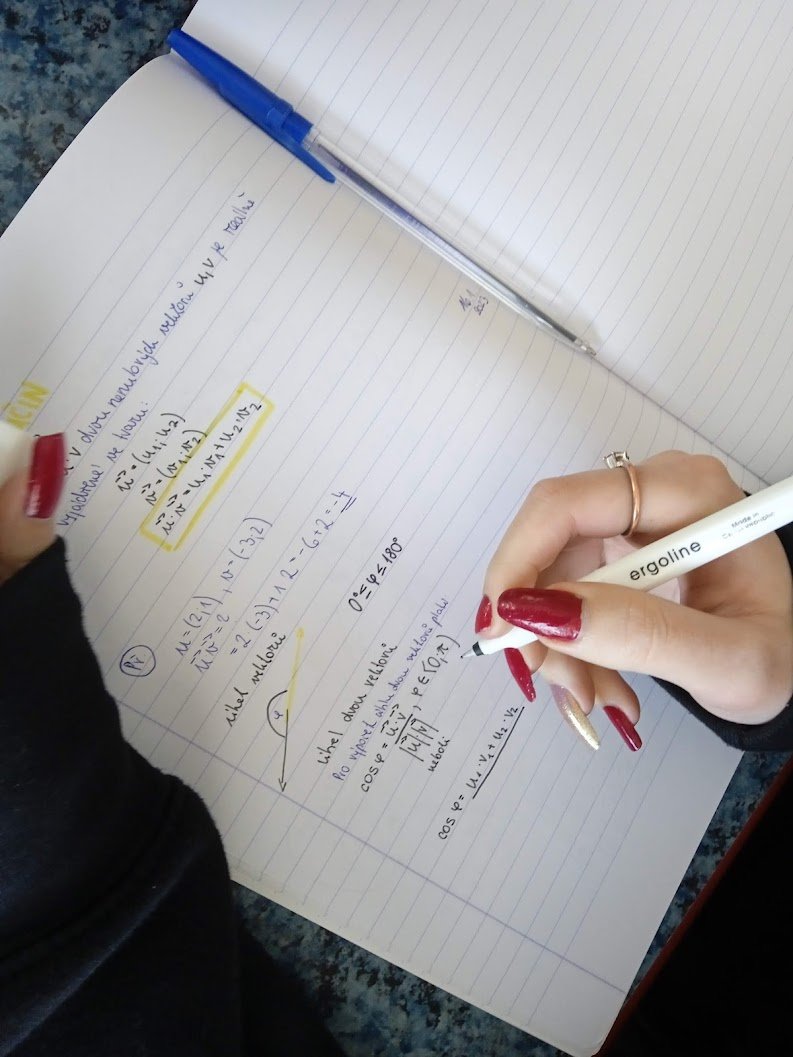 ČIN
u·v dvou nenulových vektorů u, v je reálné
vyjádřené ve tvaru:
u⃗ = (u₁; u₂)
v⃗ = (v₁; v₂)
u⃗·v⃗ = u₁·v₁ + u₂·v₂
Př
u = (2; 1), v = (-3; 2)
u⃗ v⃗ = ?
= 2·(-3) + 1·2 = -6 + 2 = -4
úhel vektorů
φ
0° ≤ φ ≤ 180°
úhel dvou vektorů
Pro výpočet úhlu dvou vektorů platí
cos φ = u⃗·v⃗ / |u⃗||v⃗|, φ ∈ ⟨0; π⟩
neboli
cos φ = u₁·v₁ + u₂·v₂
16.1
2023
ergoline
Made in